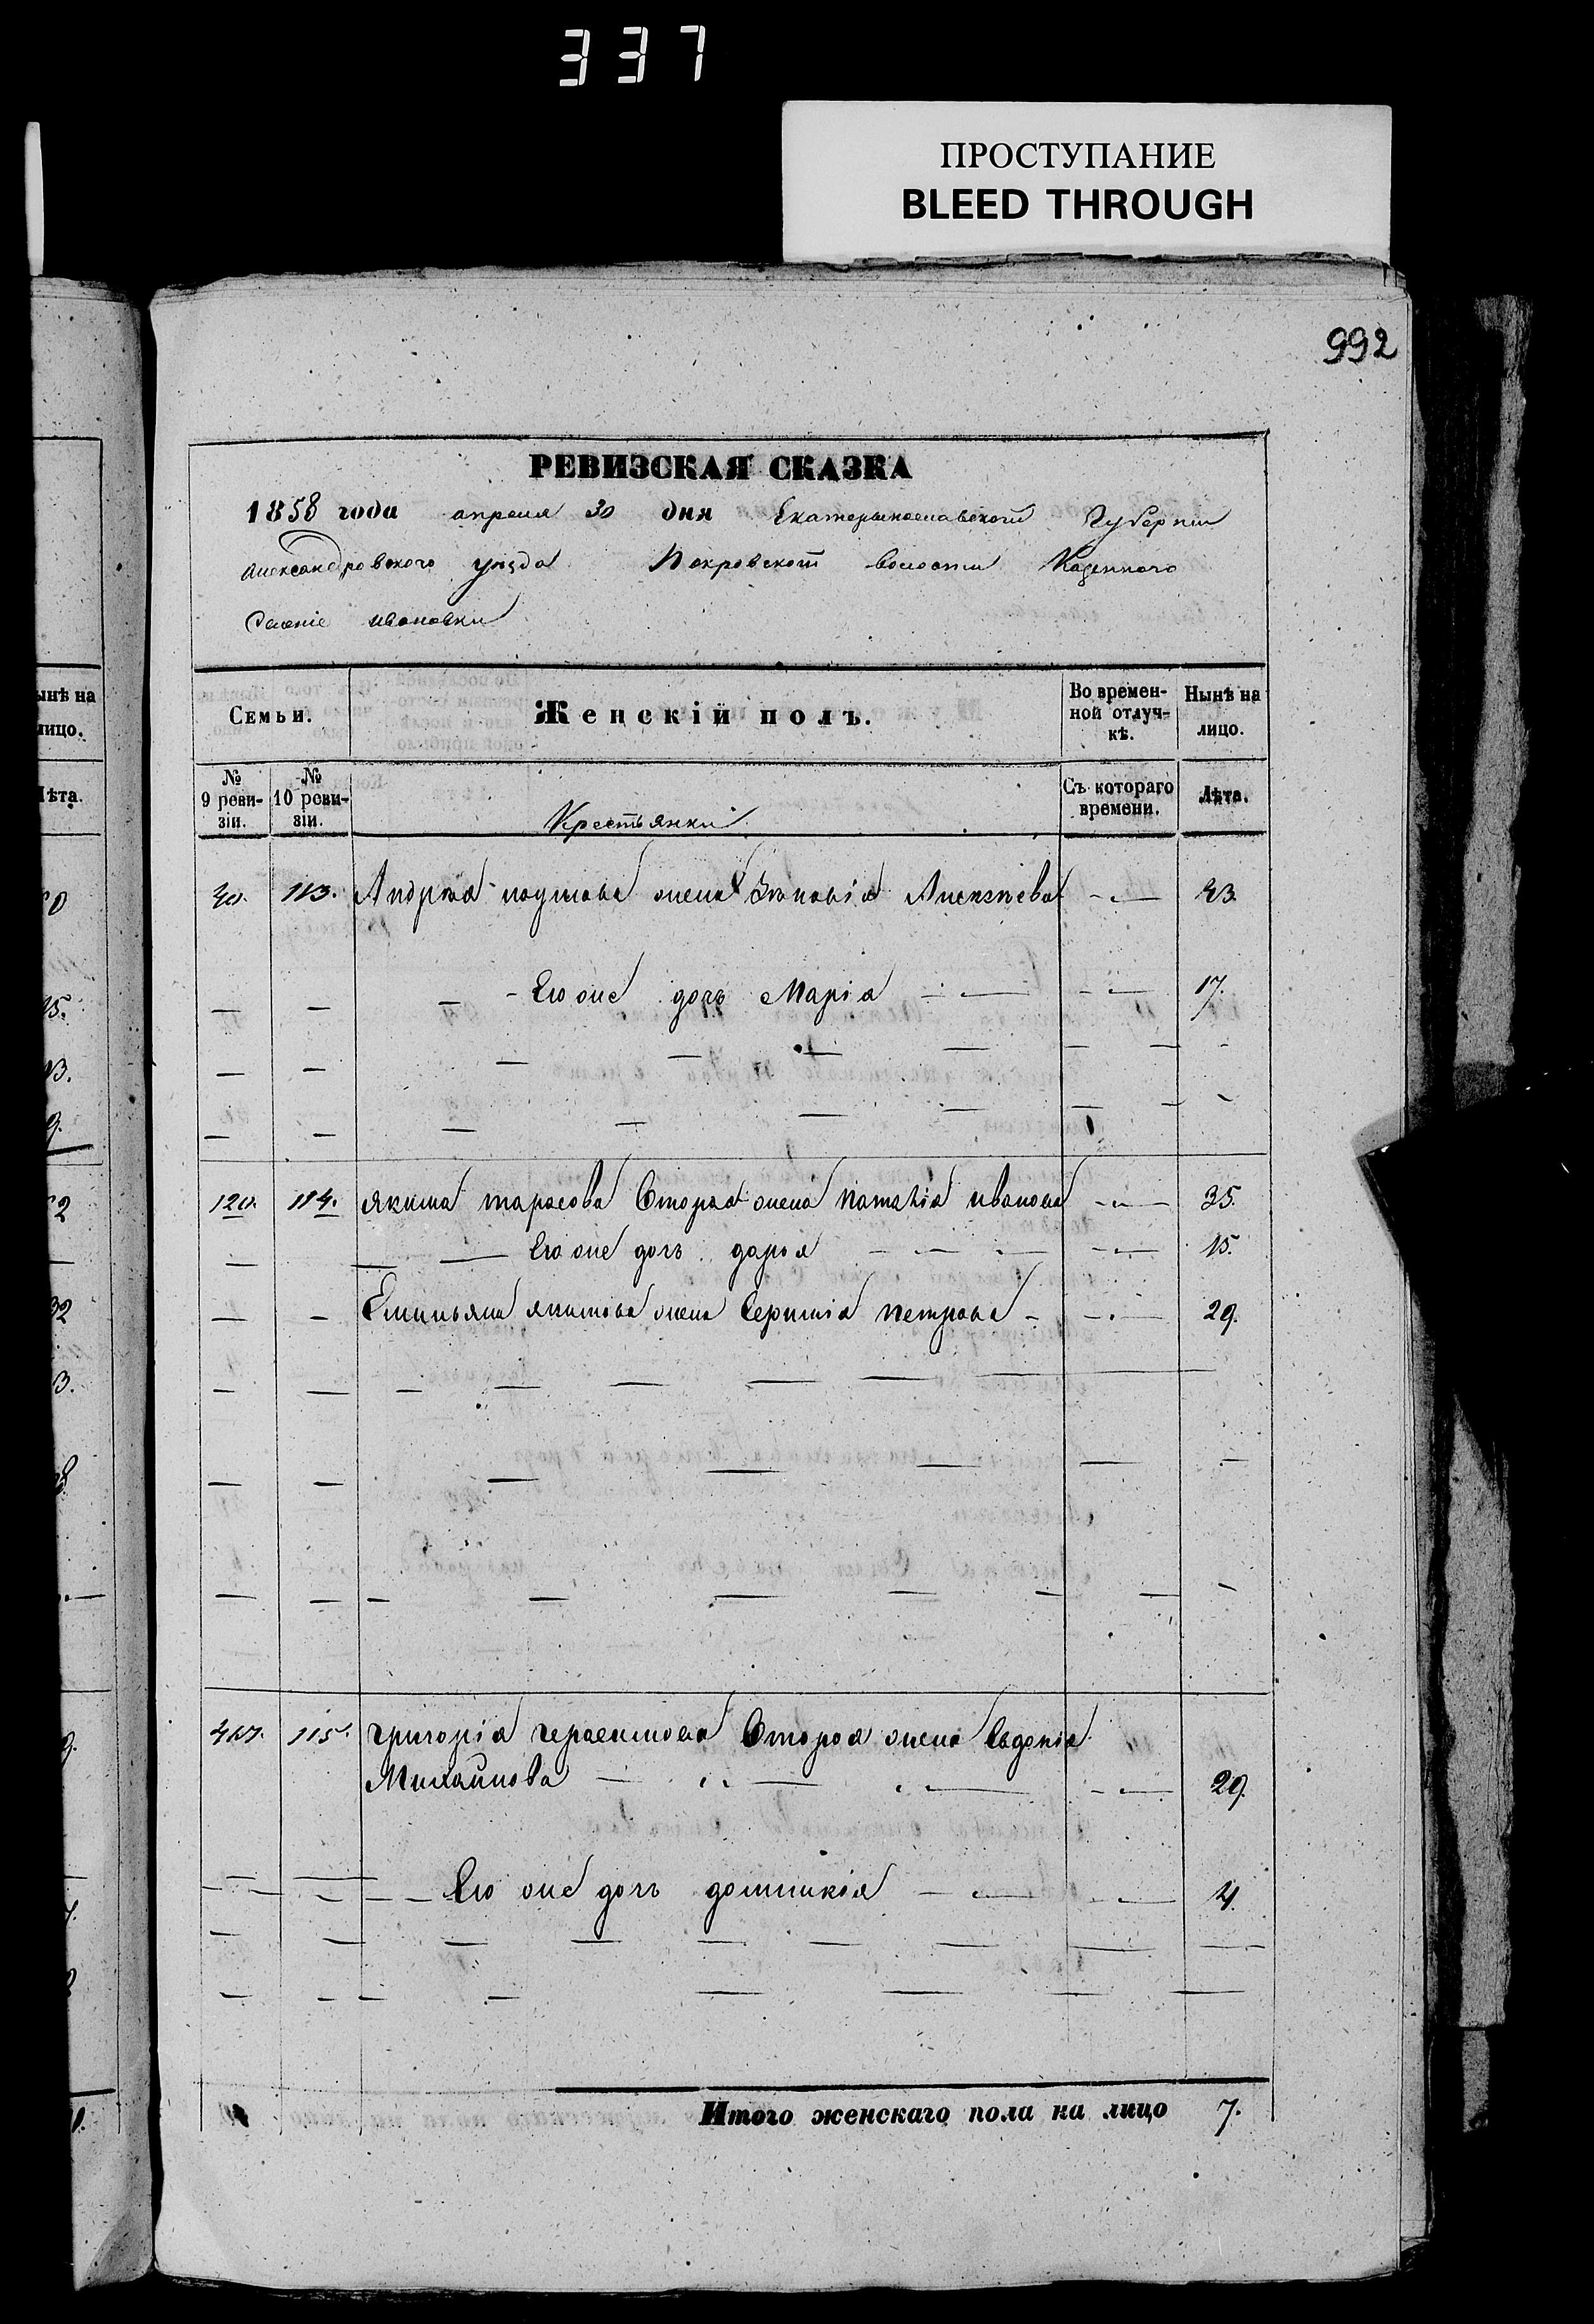 337
ПРОСТУПАНИЕ
BLEED THROUGH
992
РЕВИЗСКАЯ СКАЗКА
1858 года апреля 30 дня Екатеринославской Губерніи
Александровского уѣзда Покровской волости Казенного
Селеніе Ивановки
Семьи. Женскій полъ. Во времен-ной отлуч-кѣ. Нынѣ на лицо.
№ 9 реви-зіи. № 10 реви-зіи. Съ котораго времени. Лѣта.
Крестьянки
113. Андрѣя жена Зѣновія Алексѣева 43
Его же дочь Марія 17.
120. 114. Якима тарасова Вторая жена Наталія иванова 35.
Его же дочь дарія 15.
Емильяна якимова жена петрова 29.
115. григорія герасимова Вторая жена Евдокія
Михайлова 29.
Его же дочь домникія 4.
Итого женскаго пола на лицо 7.